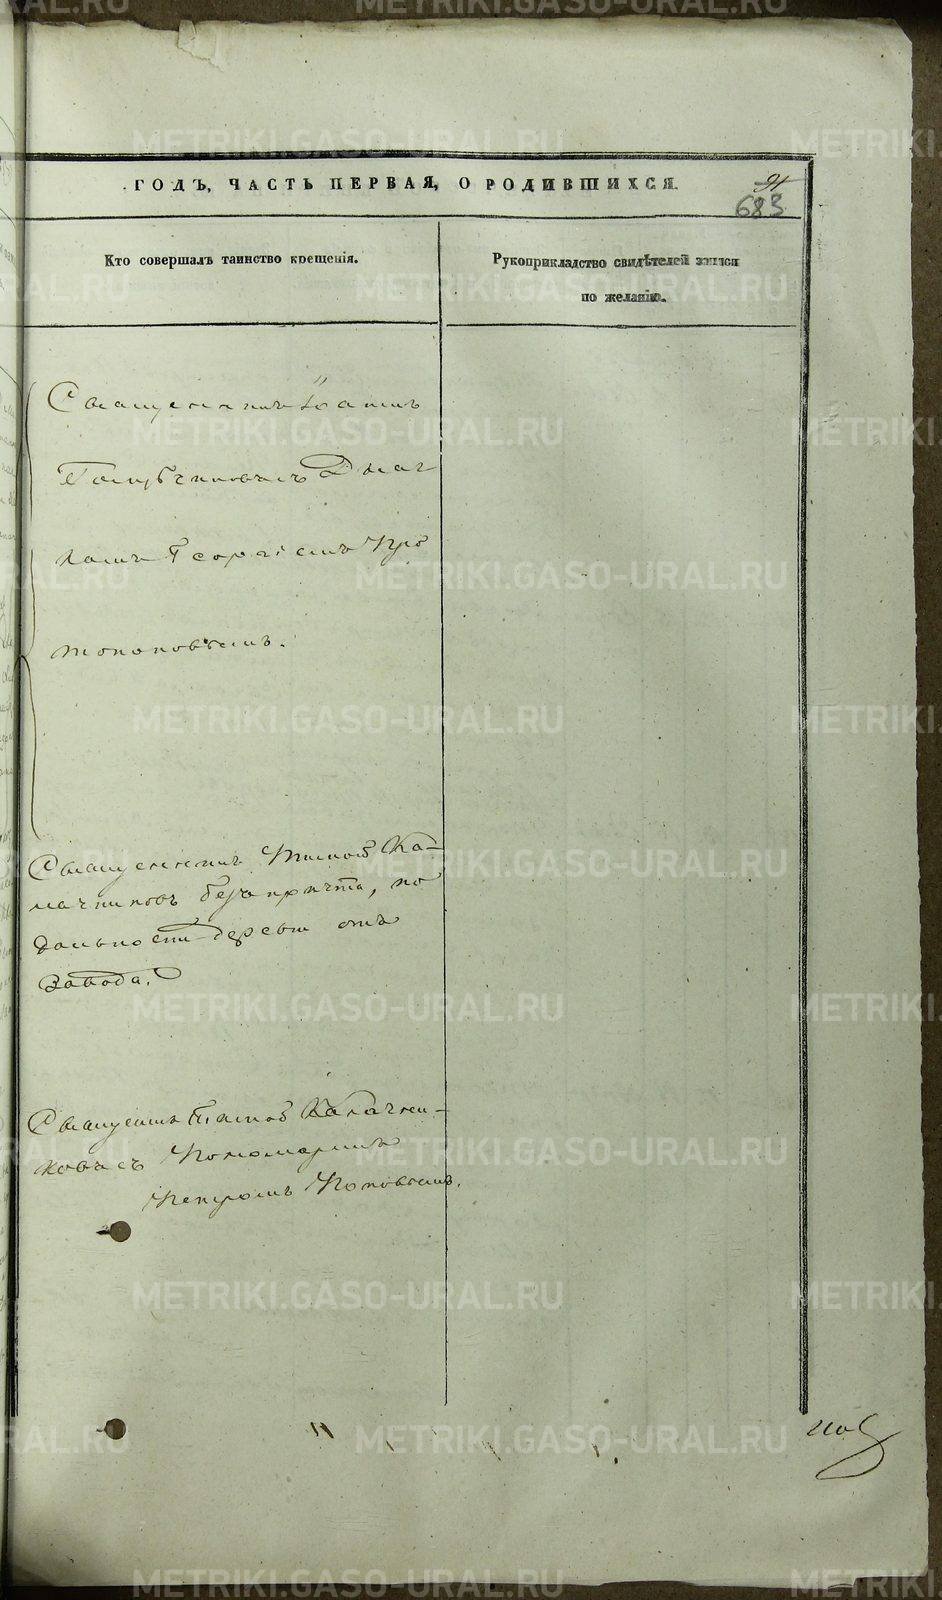 ГОДЪ, ЧАСТЬ ПЕРВАЯ, О РОДИВШИХСЯ.
91
683
Кто совершалъ таинство крещенія.
Рукоприкладство свидѣтелей записи
по желанію.
Священникъ Іоаннъ
Голубчиковъ съ Диа
кономъ Георгіемъ Про
топоповымъ.
Священникъ Тимоѳ Ка-
лачниковъ безъ причта, по
дальности деревни отъ
Завода.
Священникъ Тимоѳ Калачни-
ковъ съ Пономаремъ
Петромъ Поповымъ.
METRIKI.GASO-URAL.RU